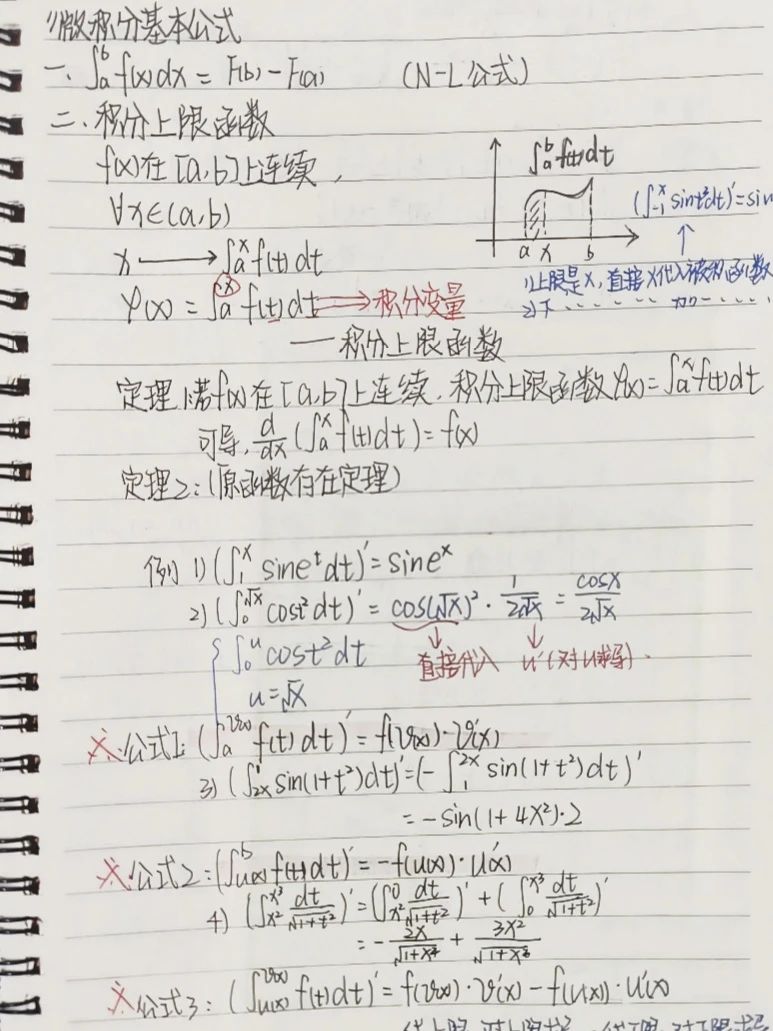 微积分基本公式
一、∫ₐᵇ f(x)dx = F(b) - F(a) (N-L公式)
二、积分上限函数
f(x)在[a,b]上连续,
∀x∈(a,b)
x → ∫ₐˣ f(t)dt
φ(x) = ∫ₐˣ f(t)dt ⇒ 积分变量
— 积分上限函数
∫ₐᵇ f(t)dt
a x b
(∫₋₁ˣ sint²dt)' = sin
↑
1)上限是x,直接x代入被积函数
2)下
定理1:若f(x)在[a,b]上连续,积分上限函数φ(x)=∫ₐˣ f(t)dt
可导, d/dx (∫ₐˣ f(t)dt) = f(x)
定理2:(原函数存在定理)
例 1) (∫₁ˣ sineᵗdt)' = sineˣ
2) (∫₀^√x cost²dt)' = cos(√x)² · 1/(2√x) = cosx/(2√x)
∫₀ᵘ cost²dt
u=√x
直接代入 u'(对u求导).
※公式1: (∫ₐ^v(x) f(t)dt)' = f(v(x))·v'(x)
3) (∫₂ₓ¹ sin(1+t²)dt)' = (-∫₁²ˣ sin(1+t²)dt)'
= -sin(1+4x²)·2
※公式2: (∫_u(x)^b f(t)dt)' = -f(u(x))·u'(x)
4) (∫_x²^x³ dt/√(1+t²))' = (∫_x²^0 dt/√(1+t²))' + (∫₀^x³ dt/√(1+t²))'
= - 2x/√(1+x⁴) + 3x²/√(1+x⁶)
※公式3: (∫_u(x)^v(x) f(t)dt)' = f(v(x))·v'(x) - f(u(x))·u'(x)